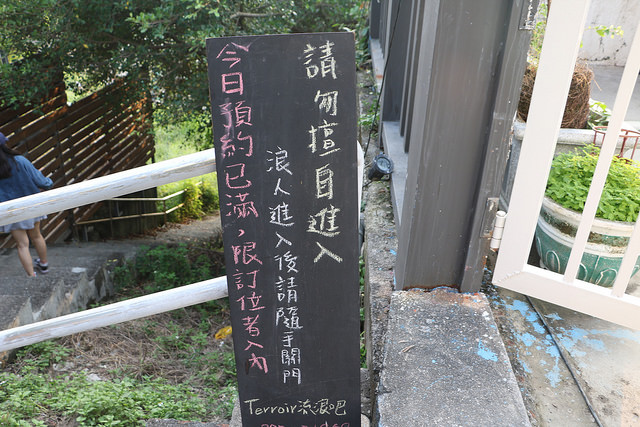 請勿擅自進入
浪人進入後請隨手關門
今日預約已滿，限訂位者入內
Terroir流浪吧